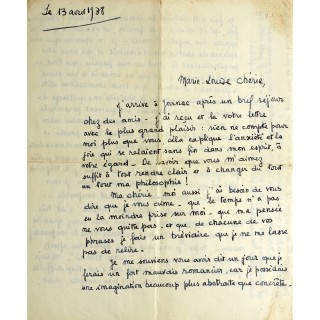 Le 13 avril 1938
Marie-Louise Chérie,
J'arrive à Jarnac après un bref séjour
chez des amis - j'ai reçu et lu votre lettre
avec le plus grand plaisir : rien ne compte pour
moi plus que vous, cela explique l'anxiété et la
joie qui se relaient sans fin dans mon esprit, à
votre égard. De savoir que vous m'aimez
suffit à tout rendre clair et à changer du tout
au tout ma philosophie !
Ma chérie, moi aussi j'ai besoin de vous
dire que je vous aime - que le temps n'a pas
eu la moindre prise sur moi - que ma pensée
ne vous quitte pas - et que, de chacune de vos
phrases je fais un bréviaire que je ne me lasse
pas de relire.
Je me souviens vous avoir dit un jour que je
ferais un fort mauvais romancier, car je possédais
une imagination beaucoup plus abstraite que concrète.